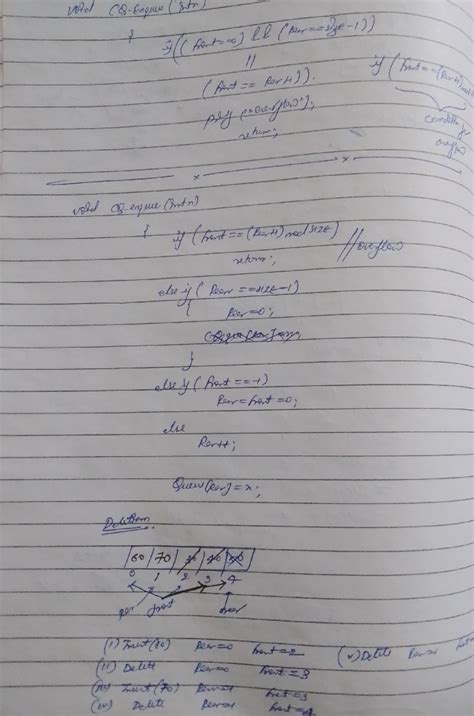 void CQ-Enqueue (int x)
{
if ((front==0) && (Rear==size-1))
||
(front == Rear+1)).
printf ("overflow");
return;
if (front==(Rear+1) mod
condition for overflow
void CQ-enqueue (int x)
{ if (front==(Rear+1) mod size) // overflow
return;
else if (Rear==size-1)
{ Rear=0;
}
else if (front==-1)
Rear=front=0;
else
Rear++;
Queue[Rear]=x;
Deletion.
60 70
0 1 2 3 4
rear front rear
(i) Insert(60) Rear=0 front=2 (v) Delete Rear=1
(ii) Delete Rear=0 front=3
(iii) Insert(70) Rear=1 front=3
(iv) Delete Rear=1 front=4